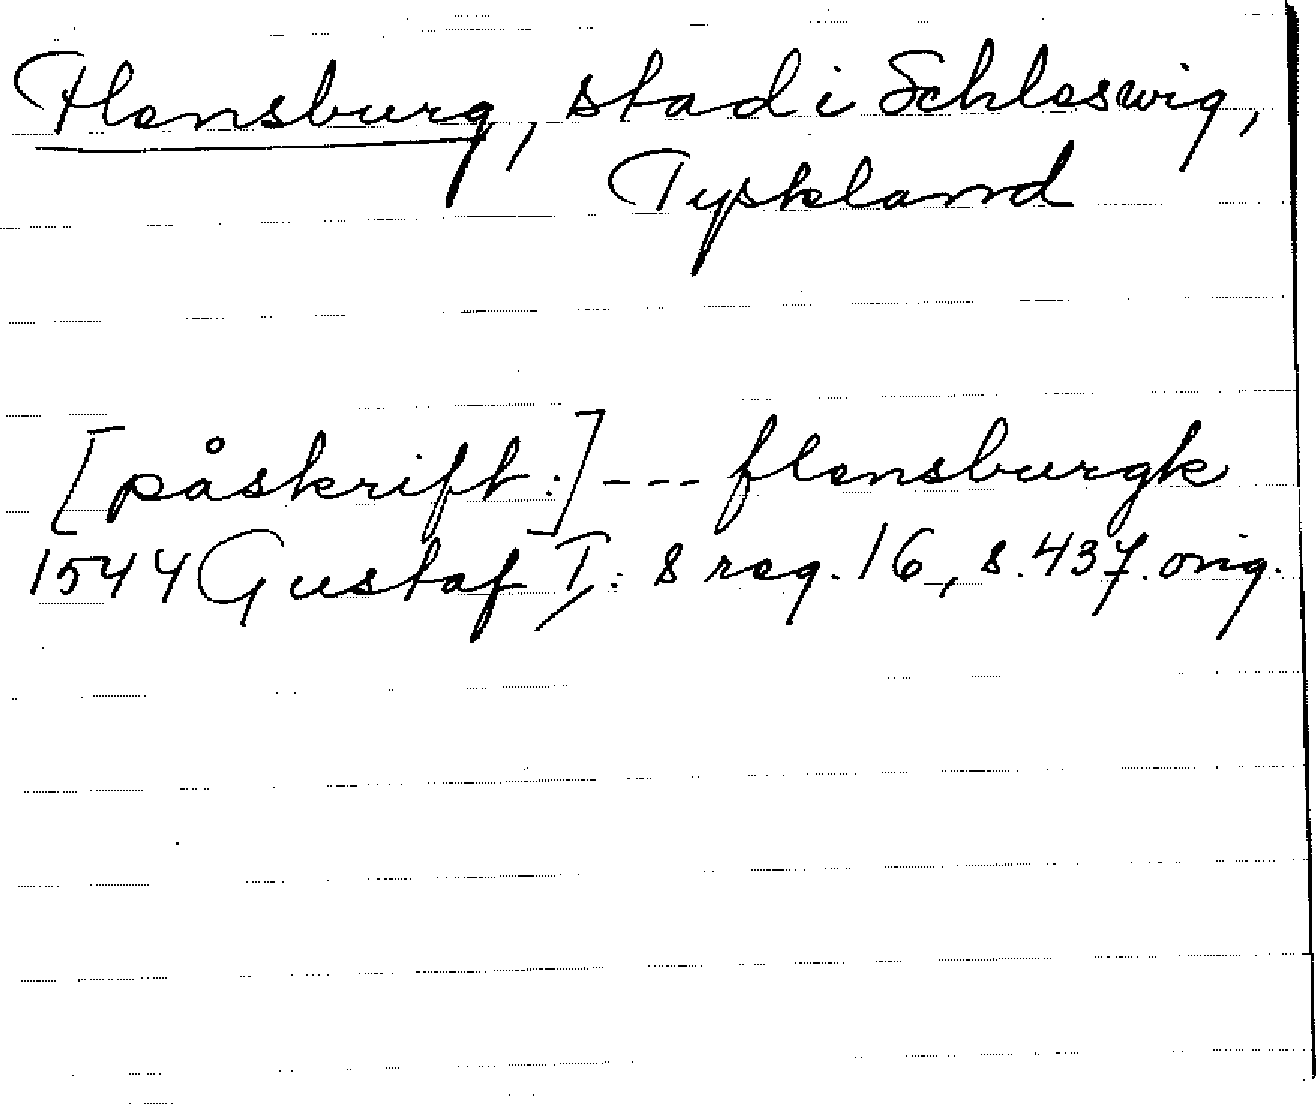 Flensburg, stad i Schleswig,
Tyskland
[påskrift:] --- flensburgk
1544 Gustaf I:s reg. 16, s. 437. orig.